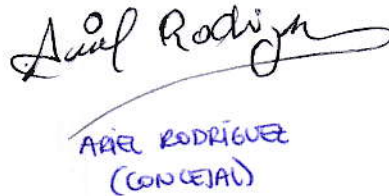 Ariel Rodrigue
ARIEL RODRÍGUEZ
(CONCEJAL)